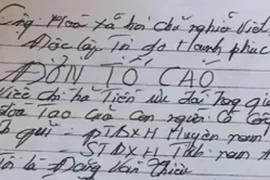 Cộng Hoà xã hội chủ nghĩa Việt
Độc lập Tự do Hạnh phúc
ĐƠN TỐ CÁO
Việc chi hà Tiền ưu đãi
đào Tạo của con người có công
gửi: PTĐXH Huyện nam
STĐXH Tỉnh nam
Tôi là Đặng Văn